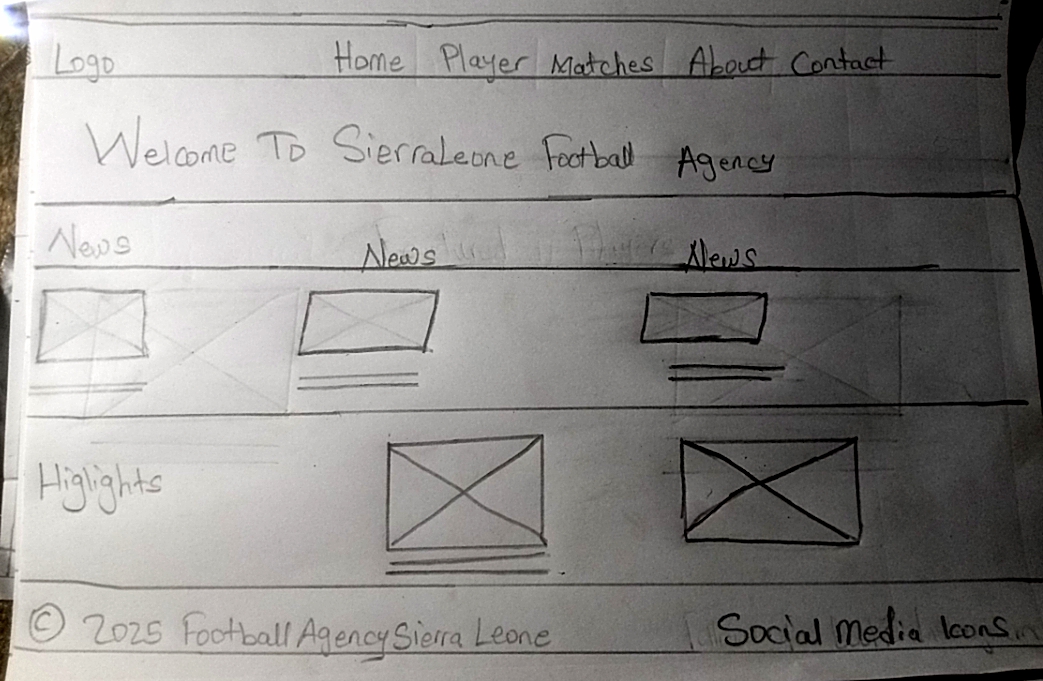 Logo Home Player Matches About Contact
Welcome To SierraLeone Football Agency
News News News
Higlights
© 2025 Football Agency Sierra Leone Social Media Icons